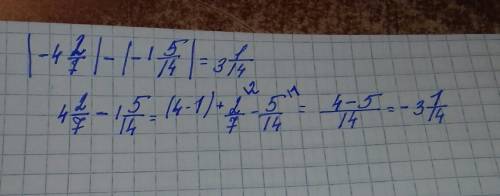 |-4 2/7| - |-1 5/14| = 3 1/14
4 2/7 - 1 5/14 = (4-1) + 2/7 \2 - 5/14 \1 = (4-5)/14 = -3 1/14